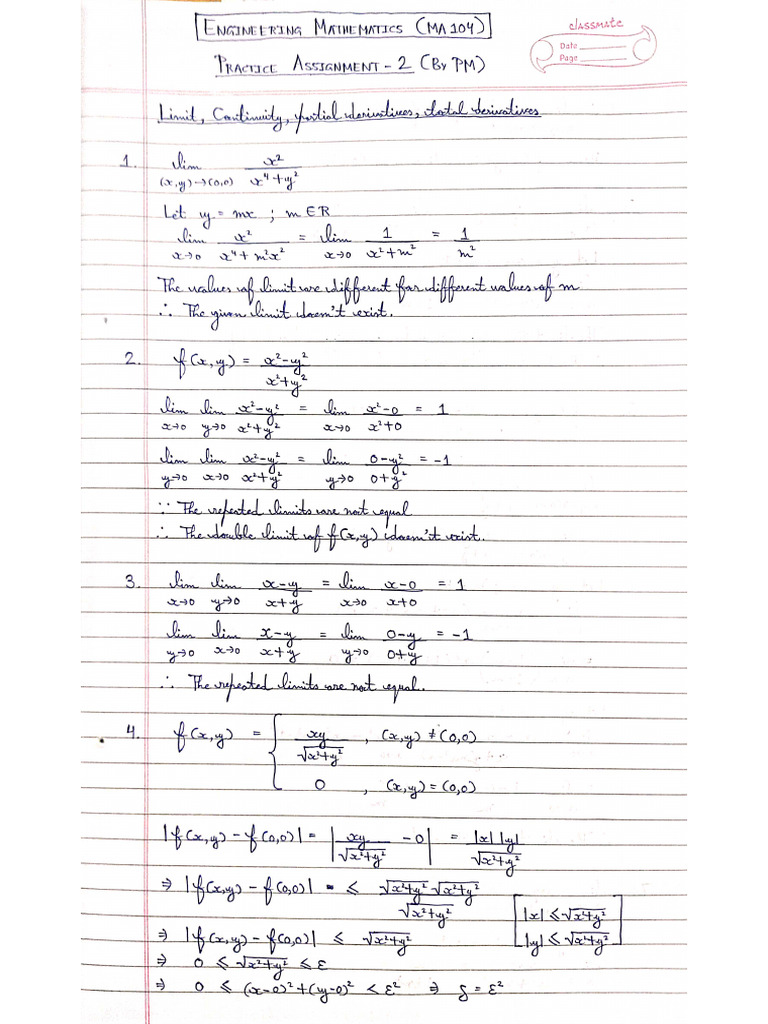 ENGINEERING MATHEMATICS (MA104)
classmate
Date
Page
PRACTICE ASSIGNMENT - 2 (By PM)
Limit, Continuity, partial derivatives, total derivatives
1. lim (x,y)→(0,0) x²/(x⁴+y²)
Let y = mx ; m ∈ R
lim x→0 x²/(x⁴+m²x²) = lim x→0 1/(x²+m²) = 1/m²
The values of limit are different for different values of m
∴ The given limit doesn't exist.
2. f(x,y) = (x²-y²)/(x²+y²)
lim x→0 lim y→0 (x²-y²)/(x²+y²) = lim x→0 (x²-0)/(x²+0) = 1
lim y→0 lim x→0 (x²-y²)/(x²+y²) = lim y→0 (0-y²)/(0+y²) = -1
∵ The repeated limits are not equal
∴ The double limit of f(x,y) doesn't exist.
3. lim x→0 lim y→0 (x-y)/(x+y) = lim x→0 (x-0)/(x+0) = 1
lim y→0 lim x→0 (x-y)/(x+y) = lim y→0 (0-y)/(0+y) = -1
∴ The repeated limits are not equal.
4. f(x,y) = { xy/√(x²+y²) , (x,y) ≠ (0,0)
0 , (x,y) = (0,0)
|f(x,y) - f(0,0)| = |xy/√(x²+y²) - 0| = |x| |y|/√(x²+y²)
⇒ |f(x,y) - f(0,0)| = ≤ √(x²+y²) √(x²+y²)/√(x²+y²)
[|x| ≤ √(x²+y²)
|y| ≤ √(x²+y²)]
⇒ |f(x,y) - f(0,0)| ≤ √(x²+y²)
⇒ 0 ≤ √(x²+y²) ≤ ε
⇒ 0 ≤ (x-0)² + (y-0)² < ε² ⇒ δ = ε²